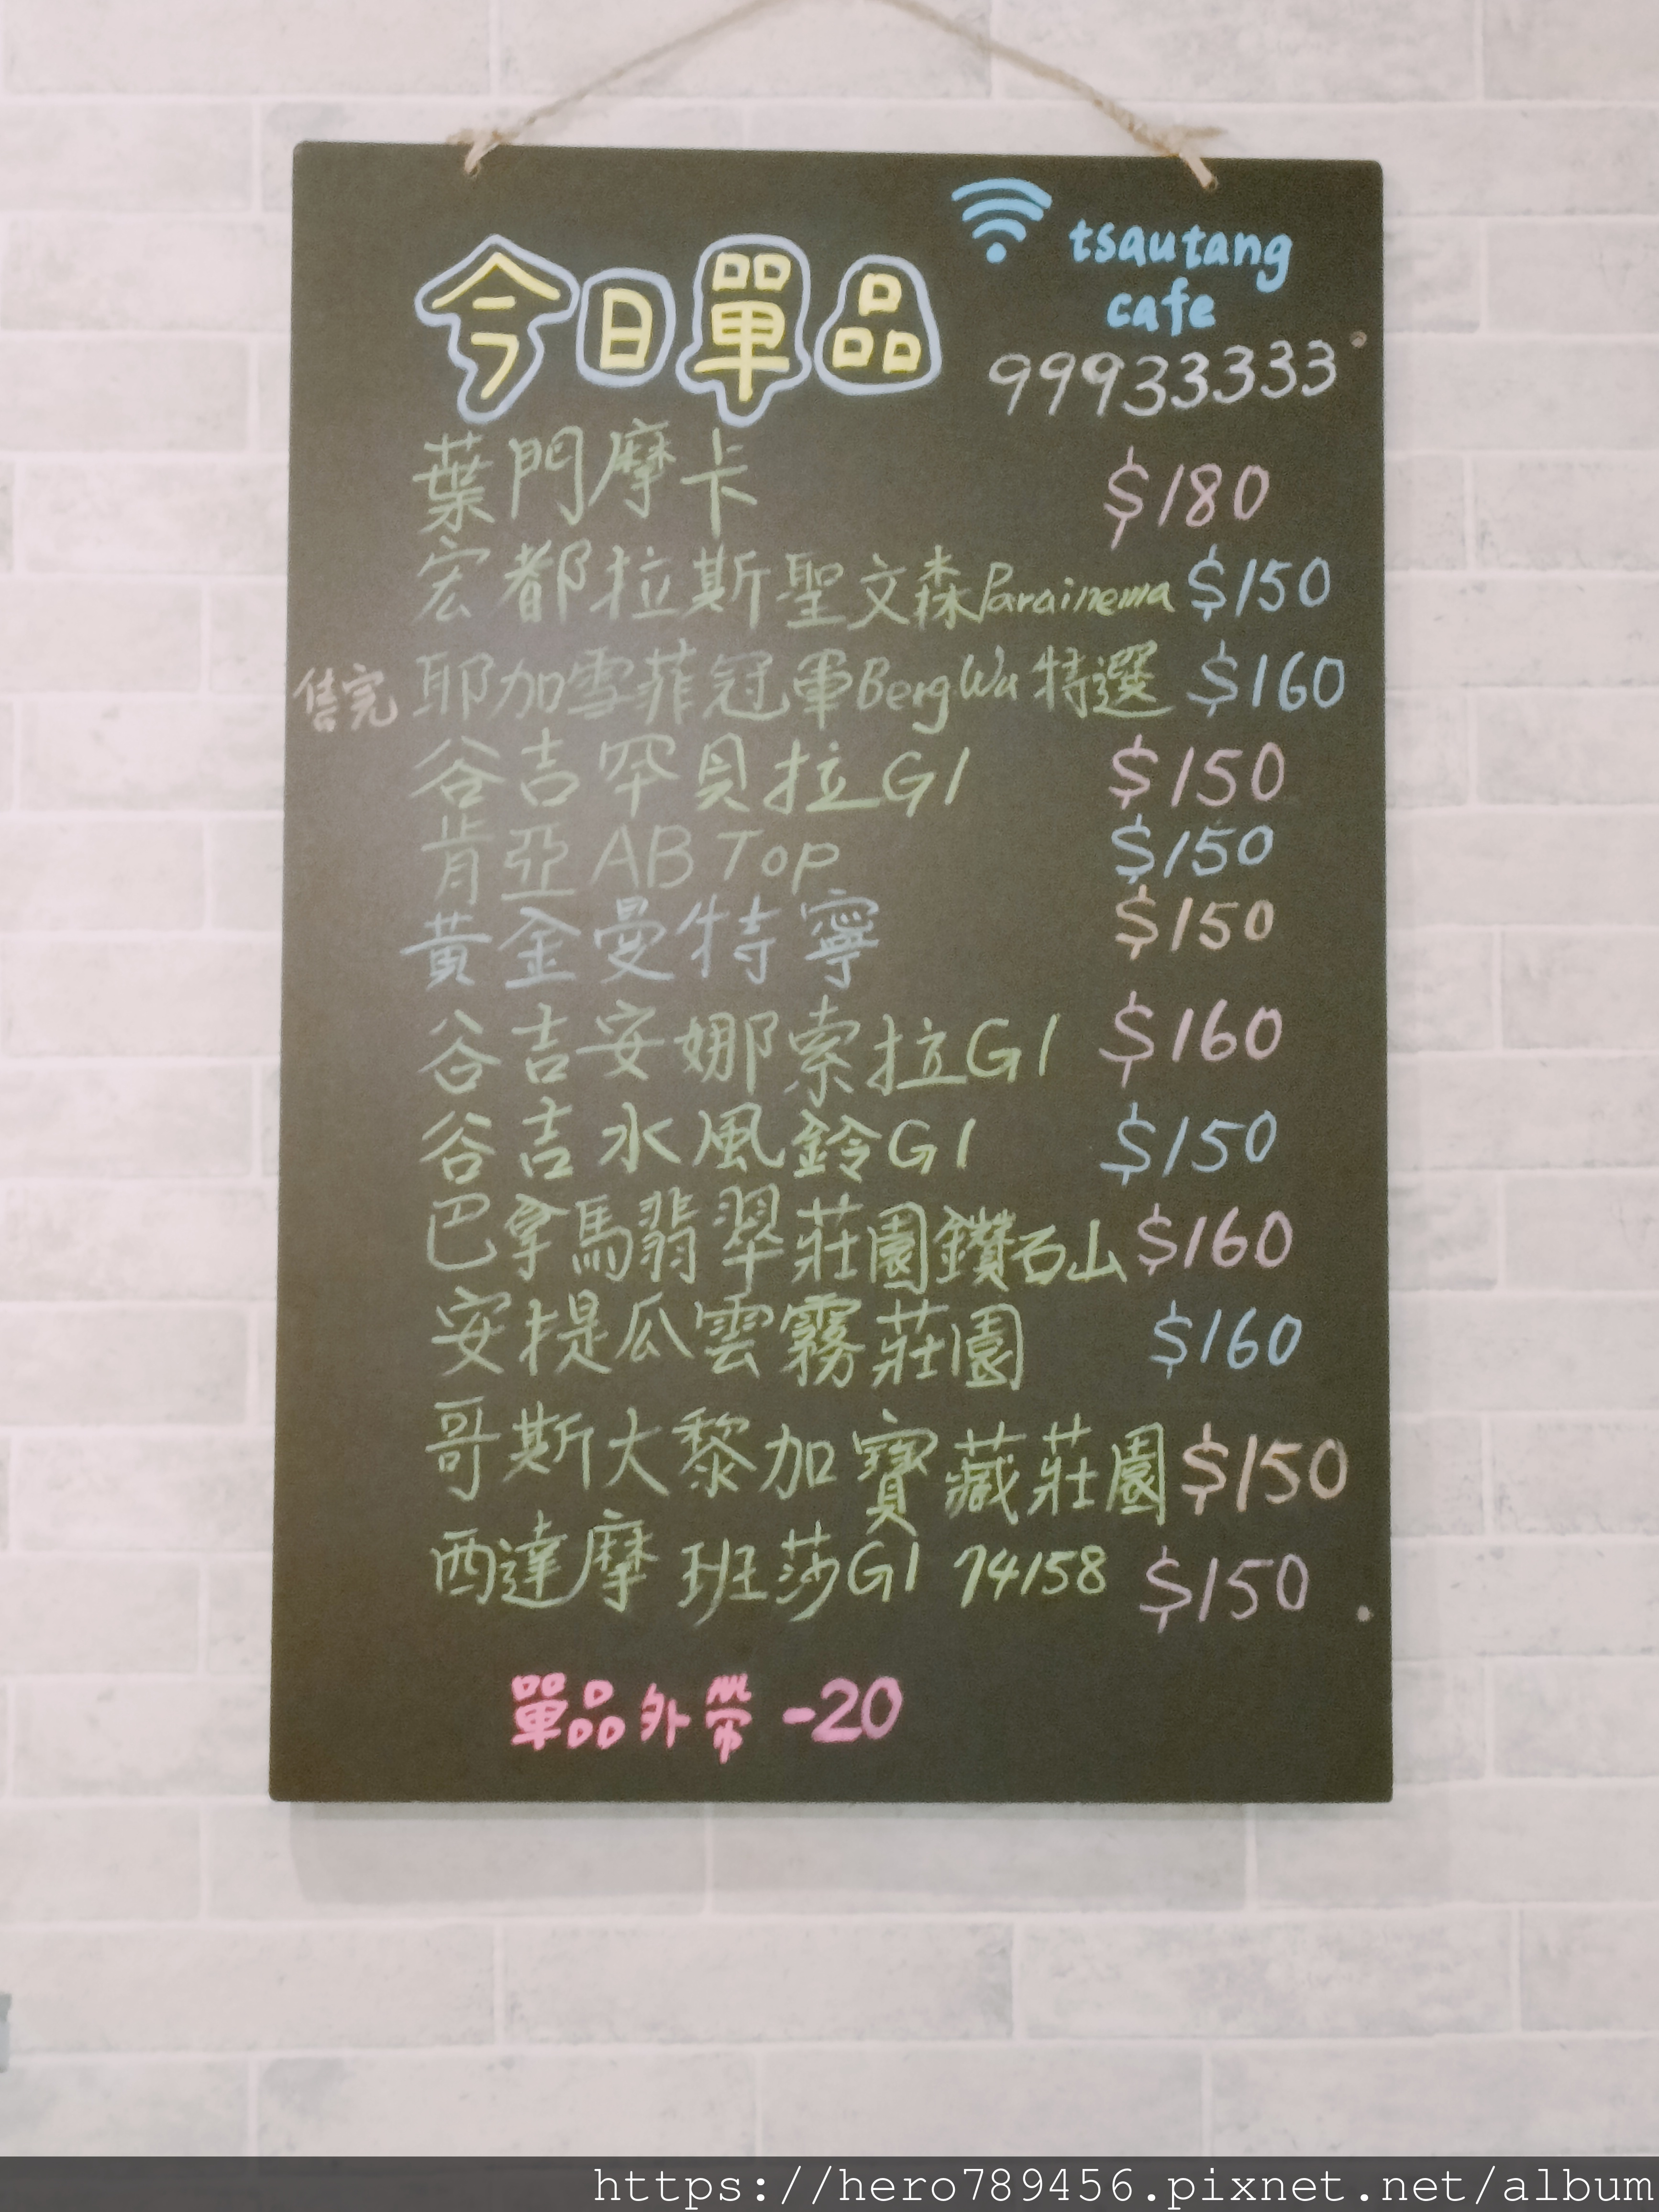 今日單品
tsautang
cafe
99933333
葉門摩卡 $180
宏都拉斯聖文森Parainema $150
售完 耶加雪菲冠軍Berg Wu特選 $160
谷吉罕貝拉G1 $150
肯亞AB Top $150
黃金曼特寧 $150
谷吉安娜索拉G1 $160
谷吉水風鈴G1 $150
巴拿馬翡翠莊園鑽石山 $160
安提瓜雲霧莊園 $160
哥斯大黎加寶藏莊園 $150
西達摩班莎G1 74158 $150
單品外帶 -20
https://hero789456.pixnet.net/album